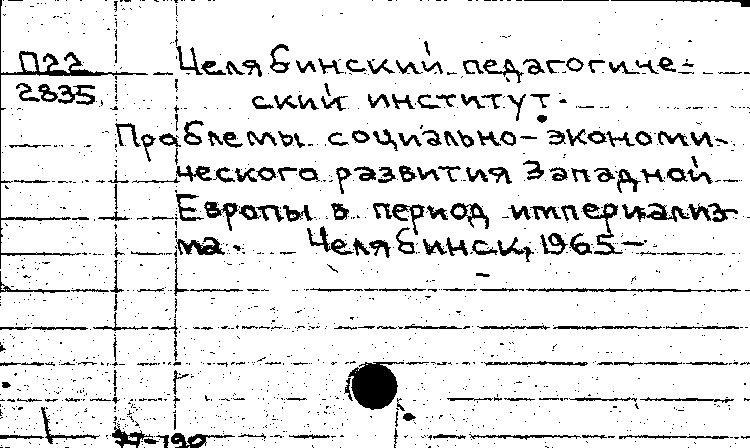 П22 Челябинский педагогиче-
2835 ский институт.
Проблемы социально-экономи-
ческого развития Западной
Европы в период империализ-
ма. Челябинск, 1965-
77-190